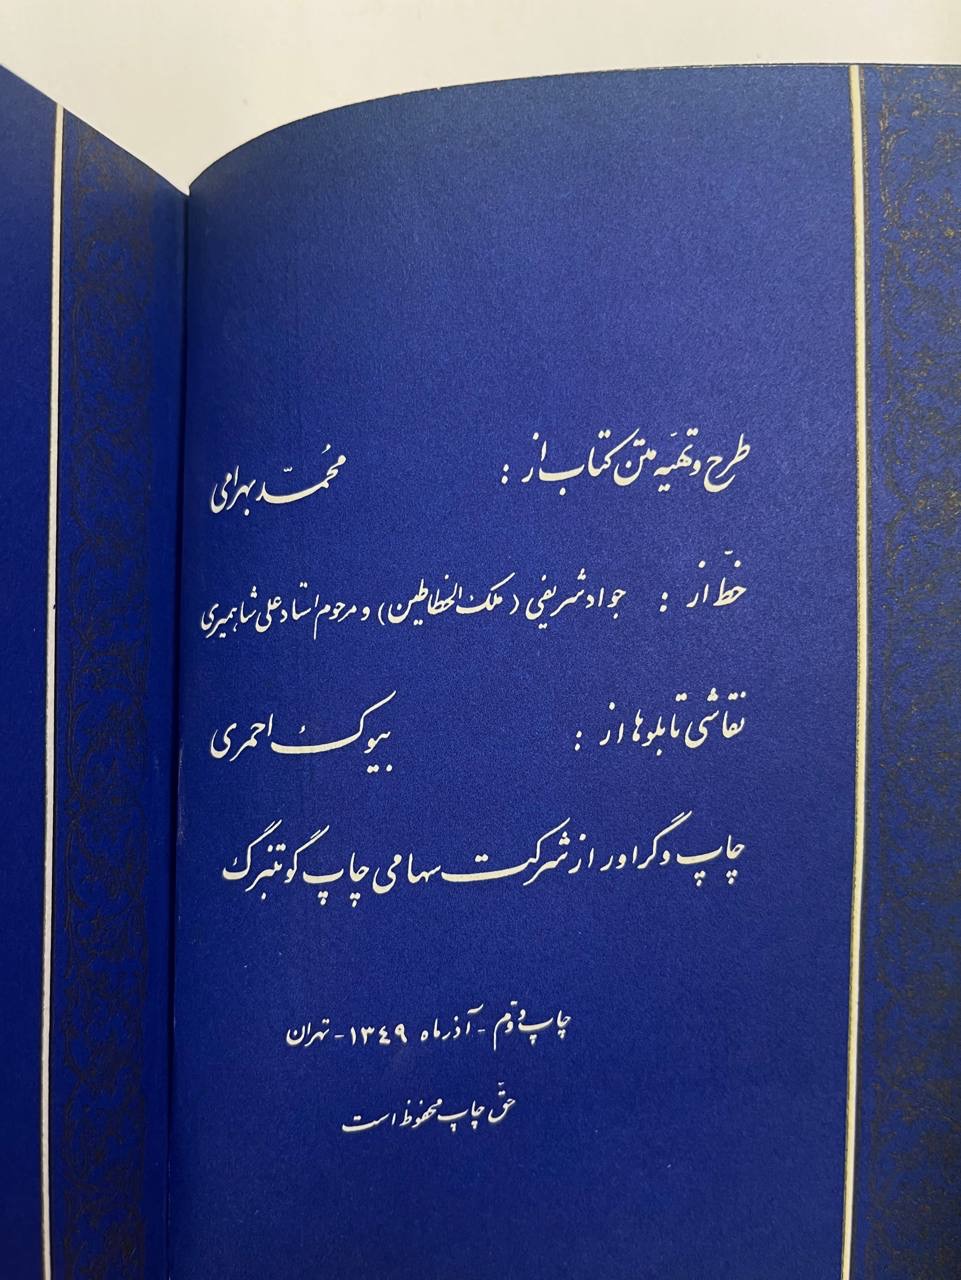 طرح و تهیّه متن کتاب از : محمّد بهرامی
خطّ از : جواد شریفی ( ملک الخطاطین ) و مرحوم استاد علی شاهمیری
نقاشی تابلوها از : بیوک احمری
چاپ و گراور از شرکت سهامی چاپ گوتنبرگ
چاپ دوّم - آذرماه ۱۳۴۹ - تهران
حقّ چاپ محفوظ است